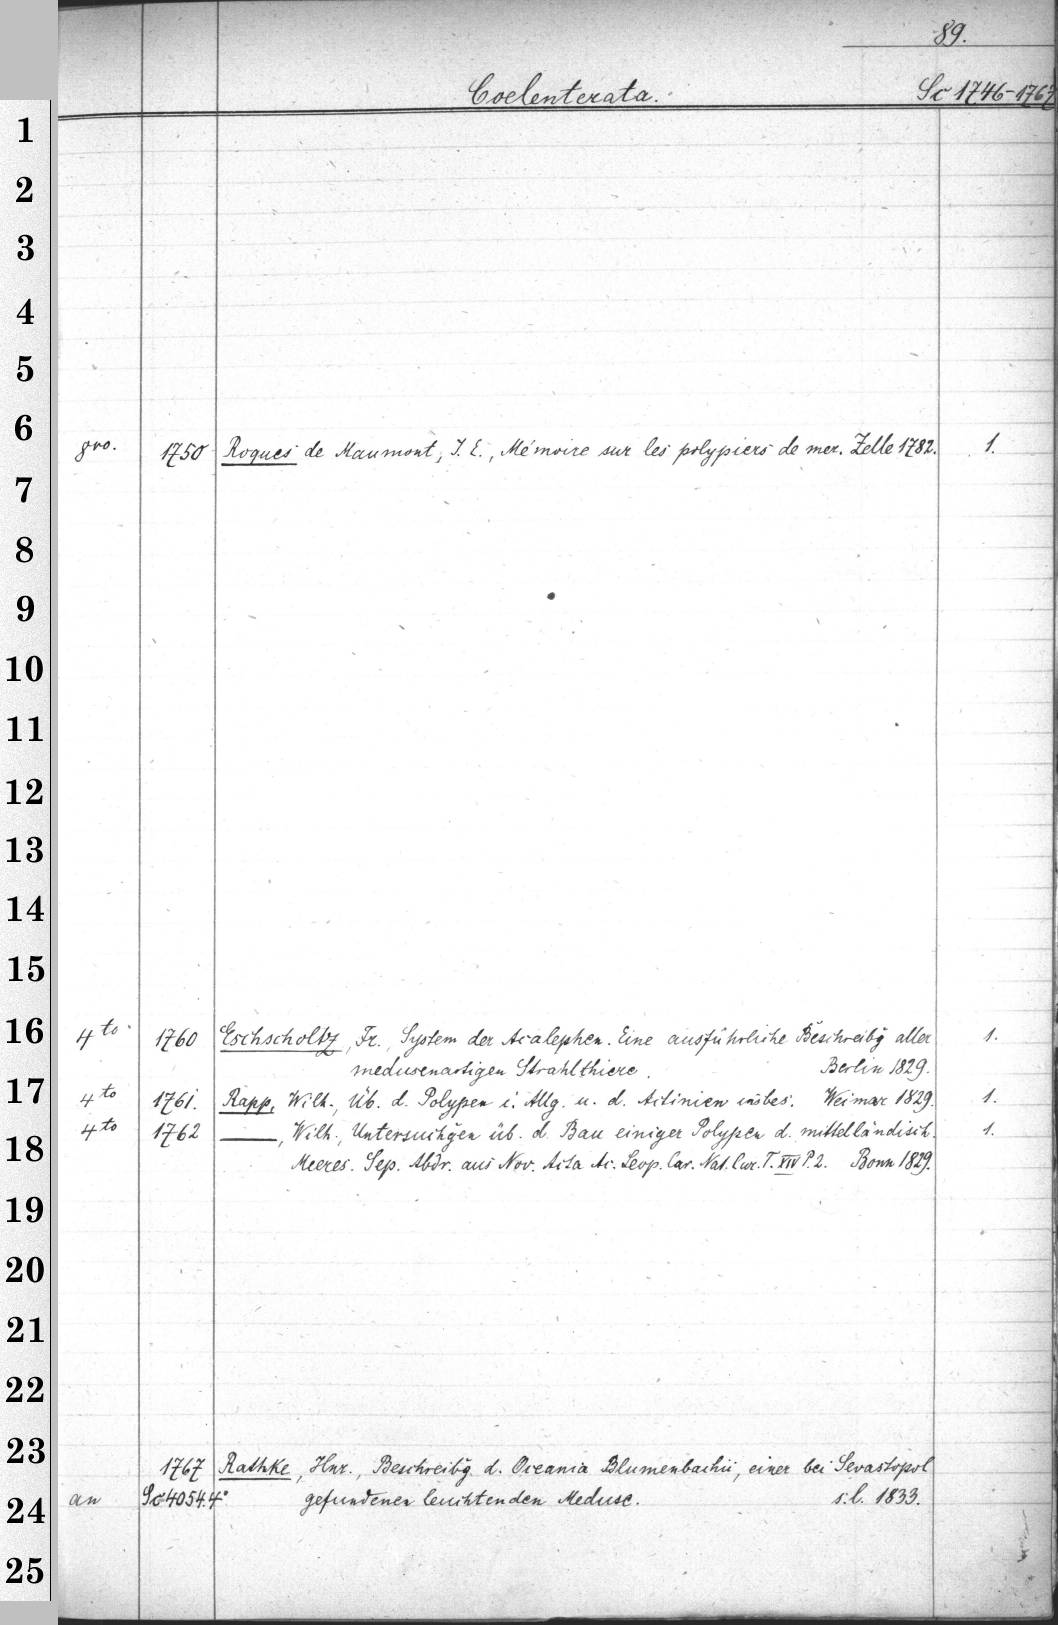 89.
Coelenterata. Sc 1746-1767
1
2
3
4
5
6
8vo. 1750 Roques de Maumont, J. E., Mémoire sur les polypiers de mer. Zelle 1782. 1.
7
8
9
10
11
12
13
14
15
16
4to. 1760 Eschscholtz, Fr., System der Acalephen. Eine ausführliche Beschreibg aller 1.
medusenartigen Strahlthiere. Berlin 1829.
17
4to 1761. Rapp, Wilh., Üb. d. Polypen i. Allg. u. d. Actinien insbes. Weimar 1829. 1.
4to 1762 ——, Wilh., Untersuchgen üb. d. Bau einiger Polypen d. mittelländisch. 1.
18
Meeres. Sep. Abdr. aus Nov. Acta Ac. Leop. Car. Nat. Cur. T. XIV P. 2. Bonn 1829.
19
20
21
22
23
1767 Rathke, Hnr., Beschreibg d. Oceania Blumenbachii, einer bei Sevastopol
an Sc 4054.4° gefundenen leuchtenden Meduse. s. l. 1833.
24
25